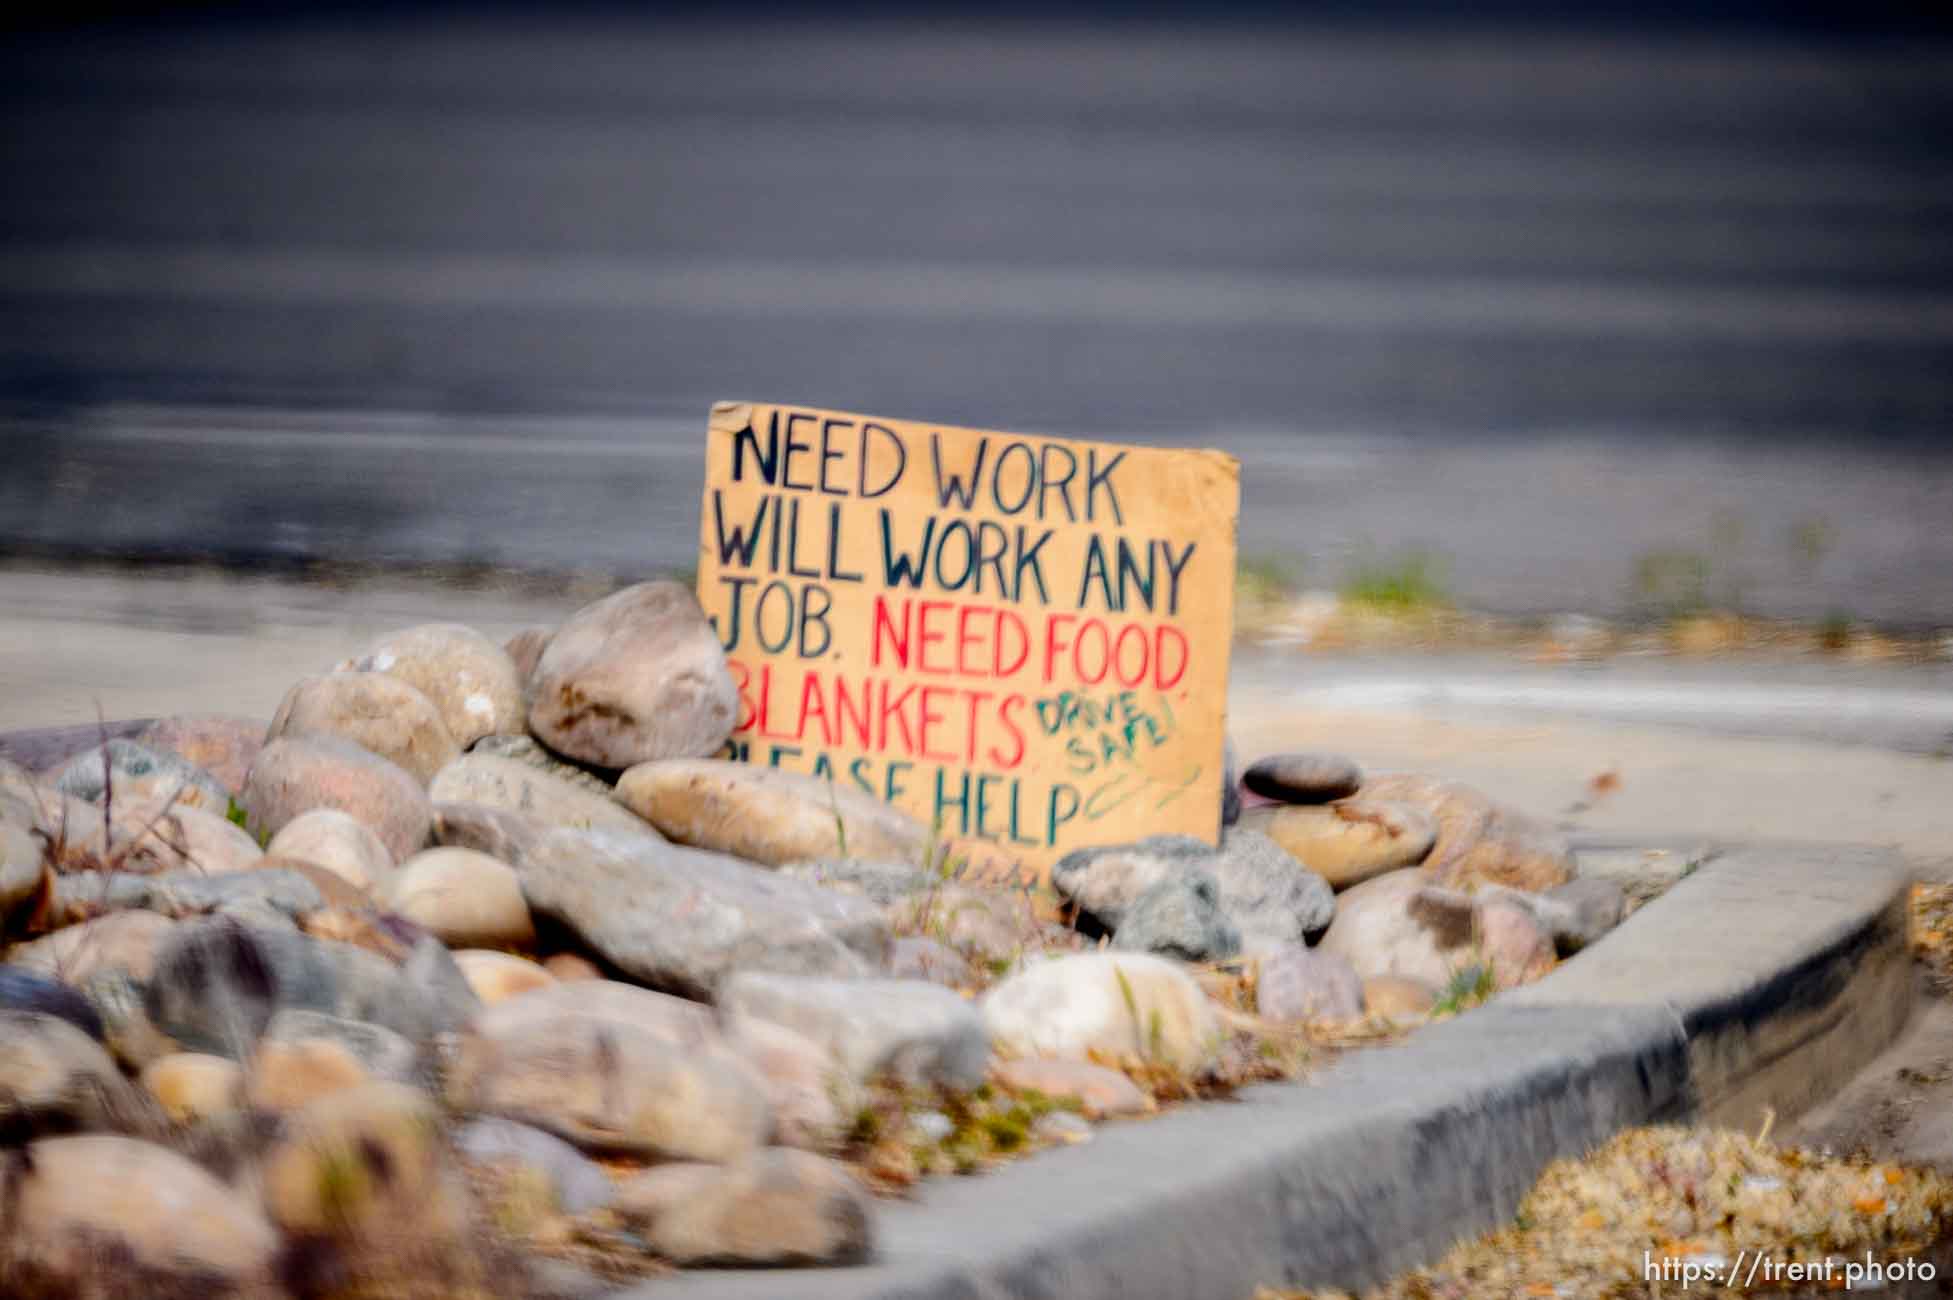 NEED WORK
WILL WORK ANY
JOB. NEED FOOD.
BLANKETS. DRIVE
SAFE!
PLEASE HELP
https://trent.photo